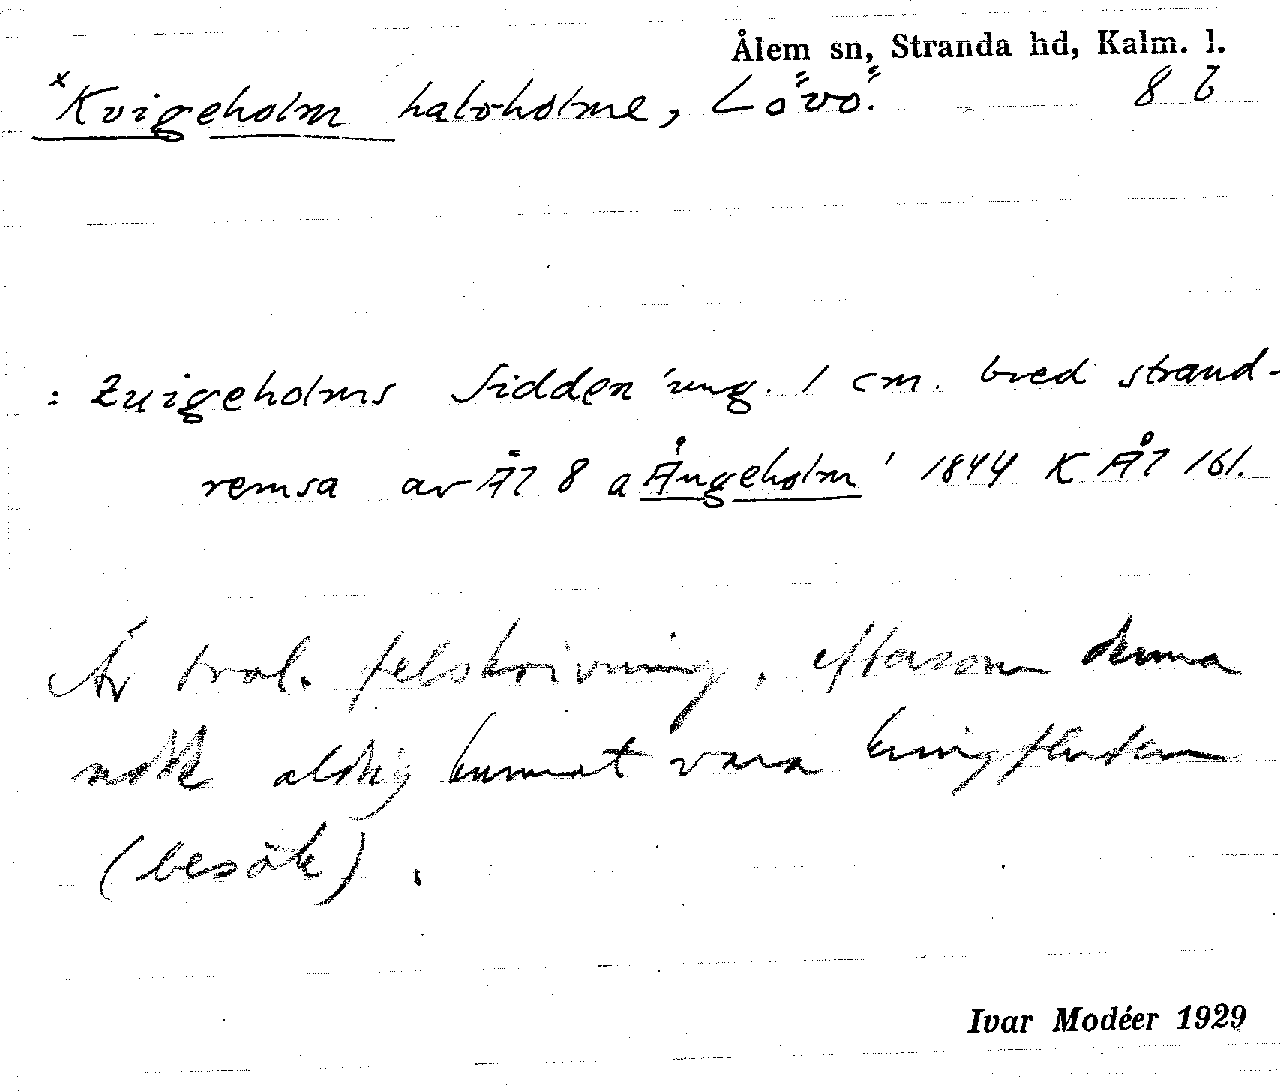 Ålem sn, Stranda hd, Kalm. l.
×Kvigeholm halvholme, Lövö. 8 b
: Kvigeholms Sidden 'ung. 1 cm. bred strand-
remsa av Äl 8 a Ängeholm' 1844 K Ål 161.
Är trol. felskrivning, eftersom denna
aldrig kunnat vara kringfluten
(besök).
Ivar Modéer 1929